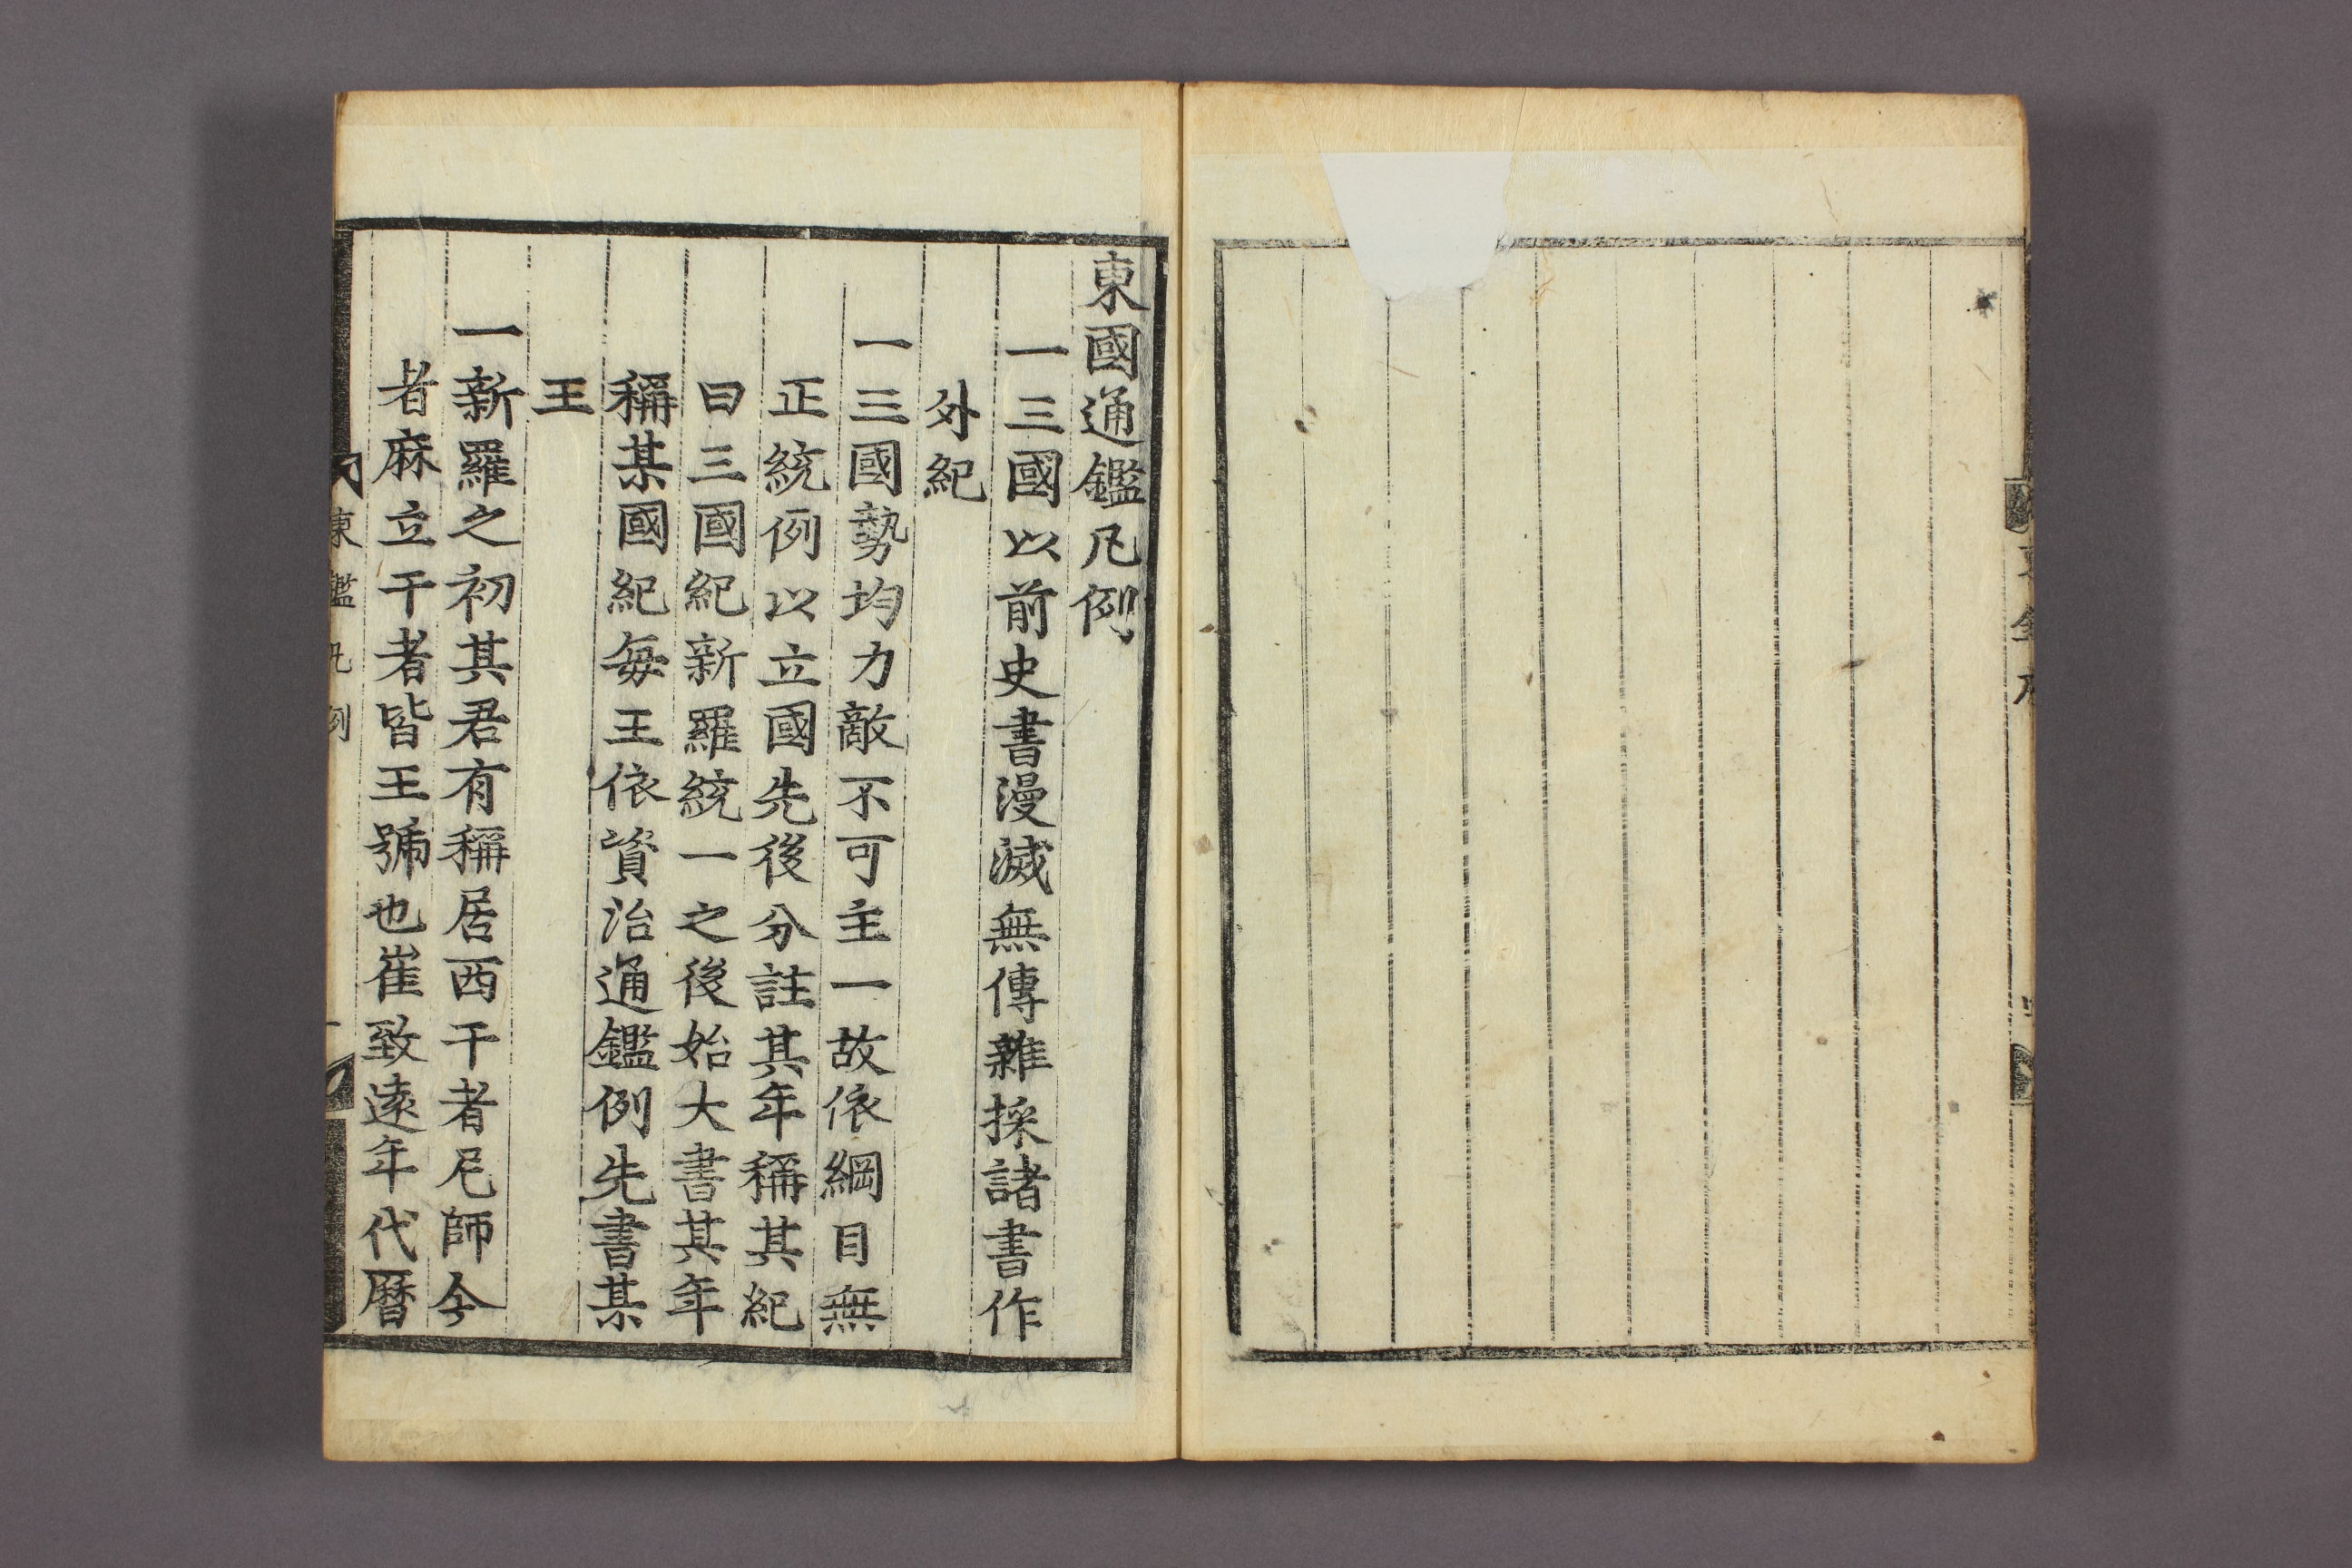 東國通鑑凡例
一三國以前史書漫滅無傳雜採諸書作
外紀
一三國勢均力敵不可主一故依綱目無
正統例以立國先後分註其年稱其紀
曰三國紀新羅統一之後始大書其年
稱某國紀每王依資治通鑑例先書某
王
一新羅之初其君有稱居西干者尼師今
者麻立干者皆王號也崔致遠年代曆
東鑑凡例
一